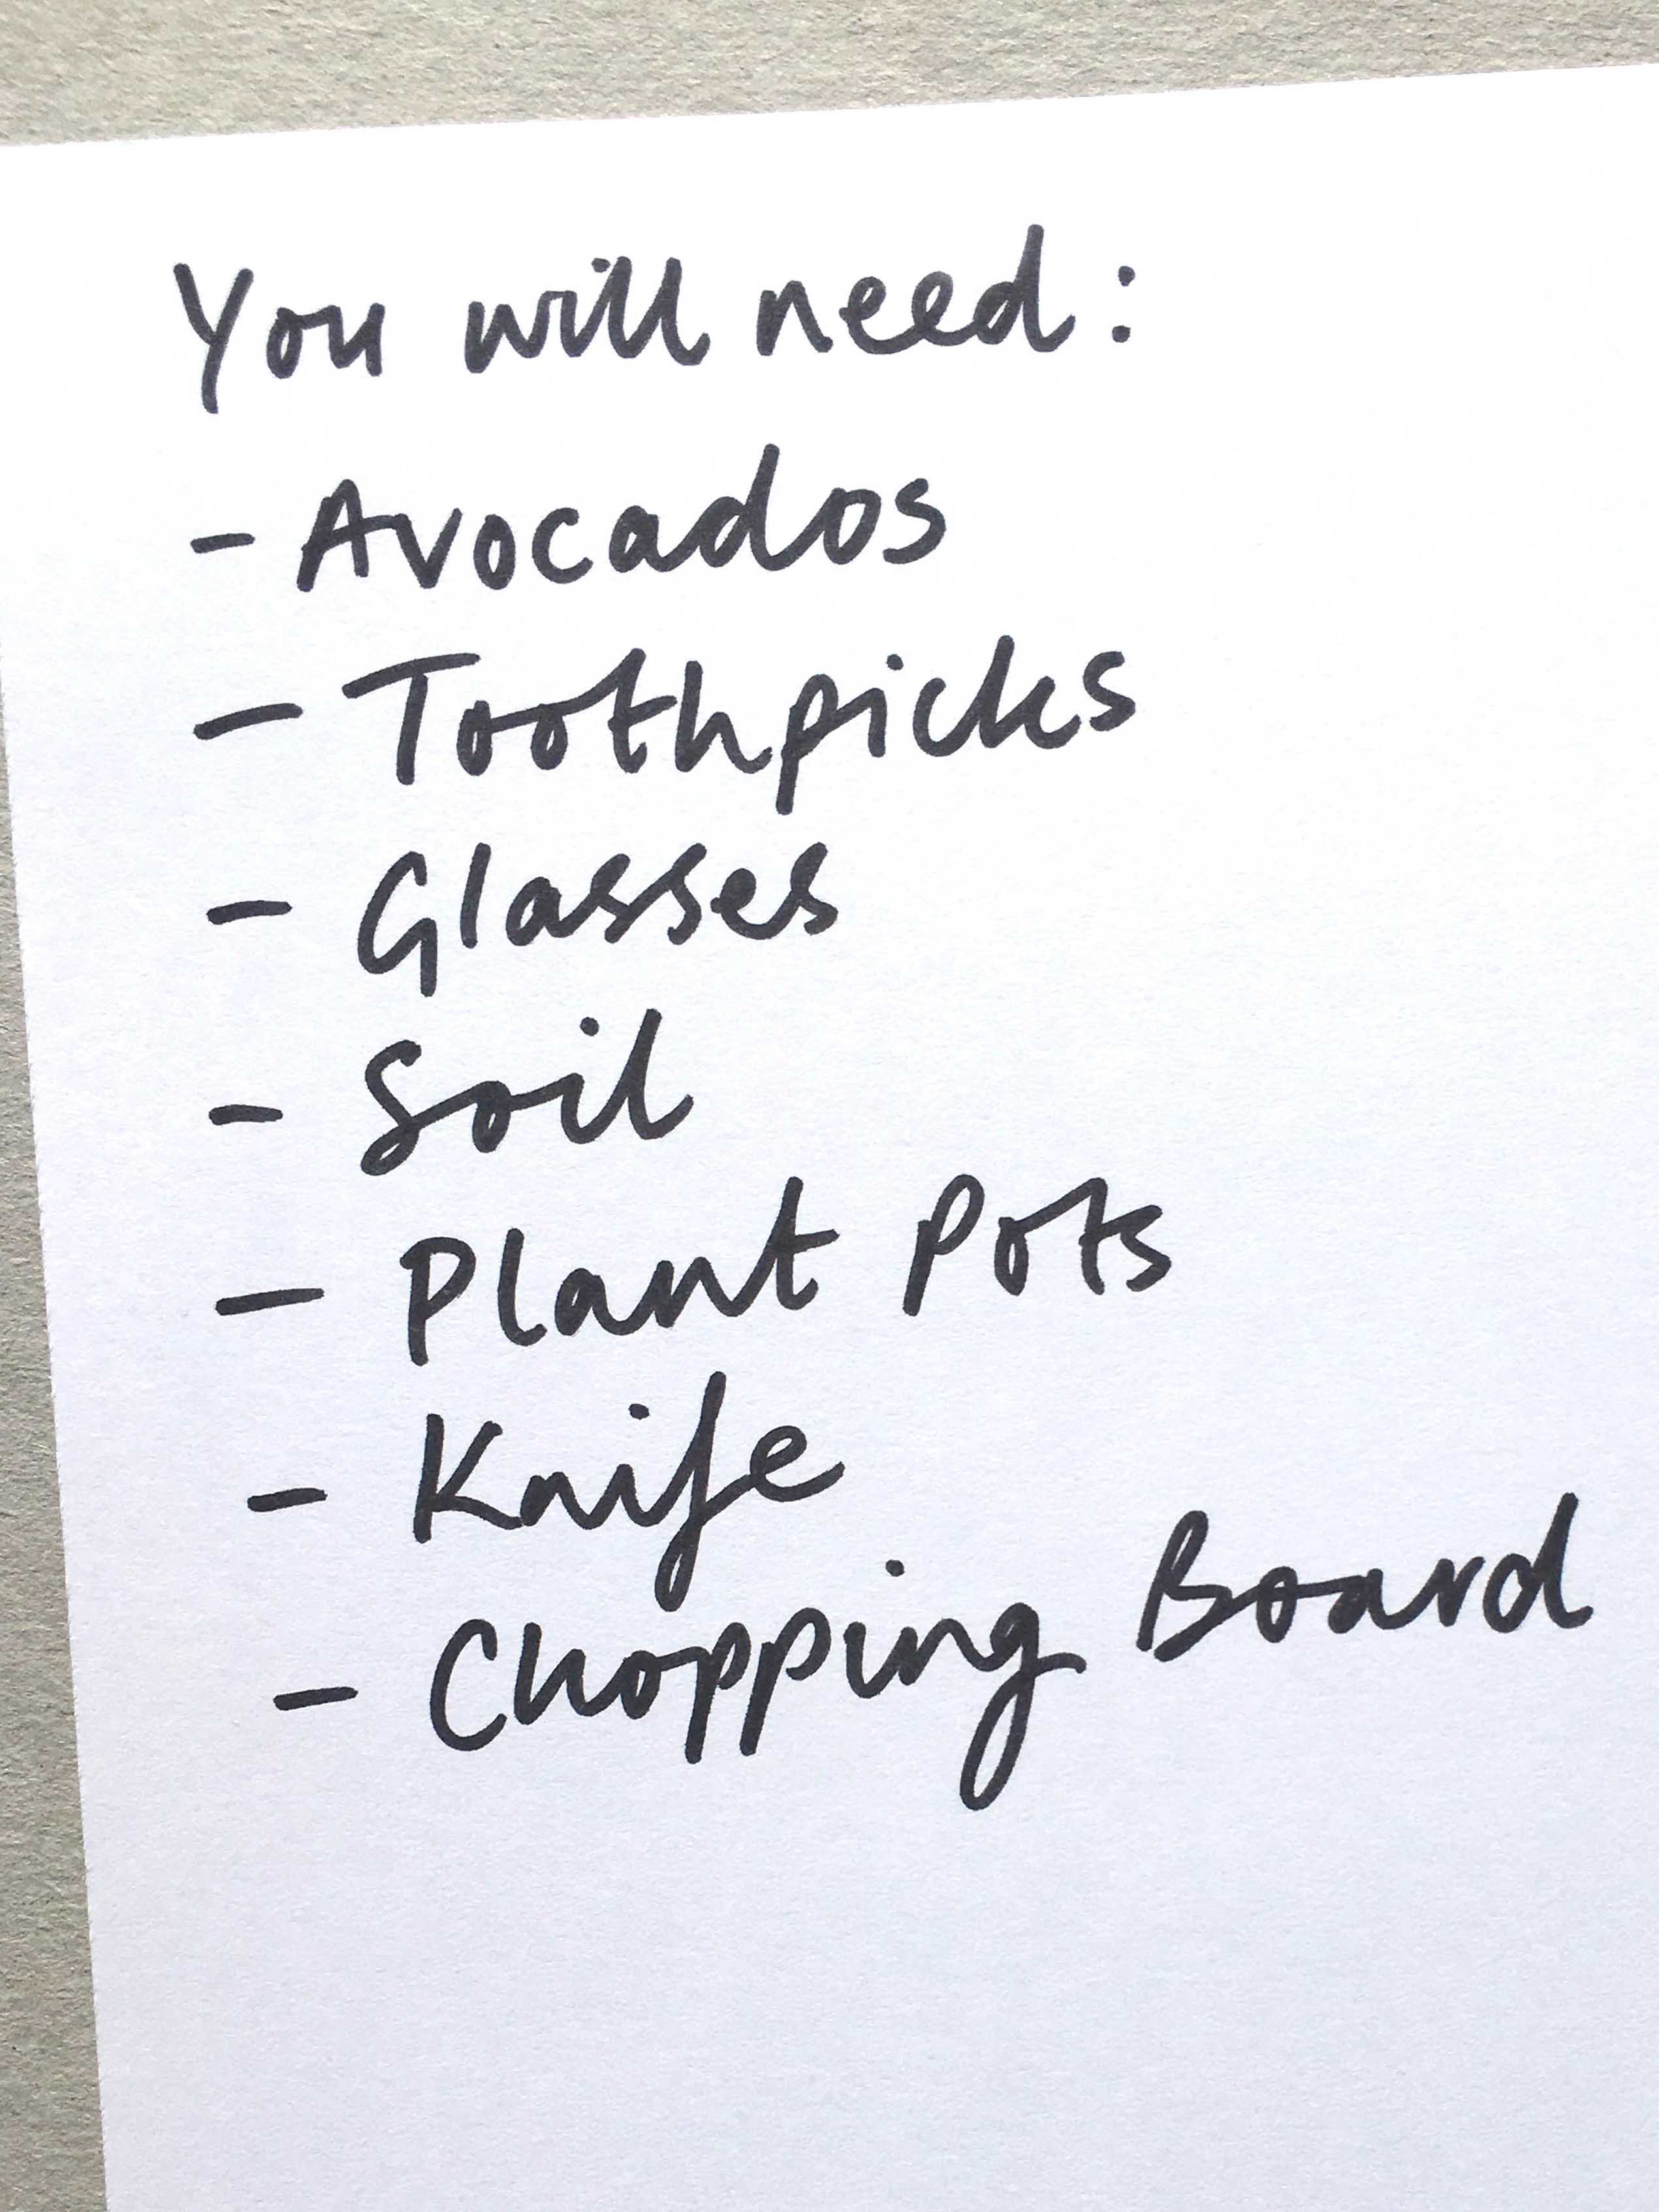 You will need:
- Avocados
- Toothpicks
- Glasses
- Soil
- Plant Pots
- Knife
- Chopping Board